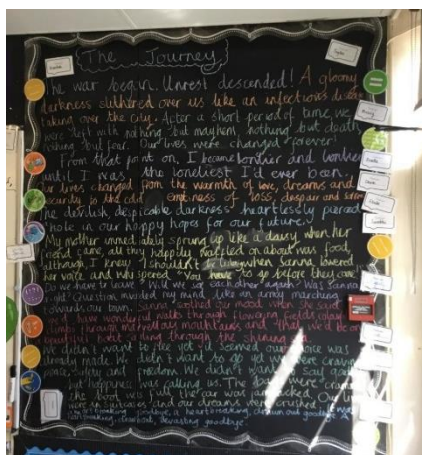 The Journey
The war began. Unrest descended! A gloomy
darkness slithered over us like an infectious disease
taking over the city. After a short period of time, we
were left with nothing but mayhem, nothing but death,
nothing but fear. Our lives were changed forever!
From that point on, I became lonlier and lonlier
until I was the loneliest I'd ever been.
Our lives changed from the warmth of love, dreams and
security to the cold emptiness of loss, despair and
The devilish, despicable darkness heartlessly pierced
hole in our happy hopes for our future.
My mother immediately sprung up like a daisy when her
friend came, all they happily waffled on about was food,
although I knew when Sanna lowered
her voice and whispered "You have to go before they come"
Do we have to leave? Will we see each other again? Was Sanna
right? Question invaded my mind like an army marching
towards our town. Sanna our mood when she said
we'd have wonderful walks through flowering fields,
climbs through marvellous mountains and that we'd be on
boat sailing through the shining
We didn't want to flee yet it seemed our choice was
already made. We didn't want to go yet we were craving
peace, safety and freedom. We didn't want to say goodbye
but happiness was calling us. The bags were crammed,
the boot was full, the car was packed. Our lives
were in suitcases and our dreams were crushed.
goodbye, a heartbreaking, drawn out goodbye. A
devasting goodbye.